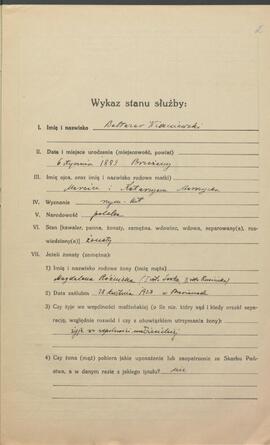 2
Wykaz stanu służby:
I. Imię i nazwisko Baltazar
II. Data i miejsce urodzenia (miejscowość, powiat)
6 stycznia 1893
III. Imię ojca, oraz imię i nazwisko rodowe matki)
i Katarzyna
IV. Wyznanie rzym.-kat
V. Narodowość polska
VI. Stan (kawaler, panna, żonaty, zamężna, wdowiec, wdowa, separowany(a), roz-
wiedziony(a)) żonaty
VII. Jeżeli żonaty (zamężna):
1) Imię i nazwisko rodowe żony (imię męża)
Magdalena
2) Data zaślubin 18 1923 w
3) Czy żyje we wspólności małżeńskiej (o ile nie, który sąd i kiedy orzekł sepa-
rację, względnie rozwód i czy z obowiązkiem utrzymania żony):
żyje w wspólności małżeńskiej
4) Czy żona (mąż) pobiera jakie uposażenie lub zaopatrzenie ze Skarbu Pań-
stwa, a w danym razie z jakiego tytułu? nie